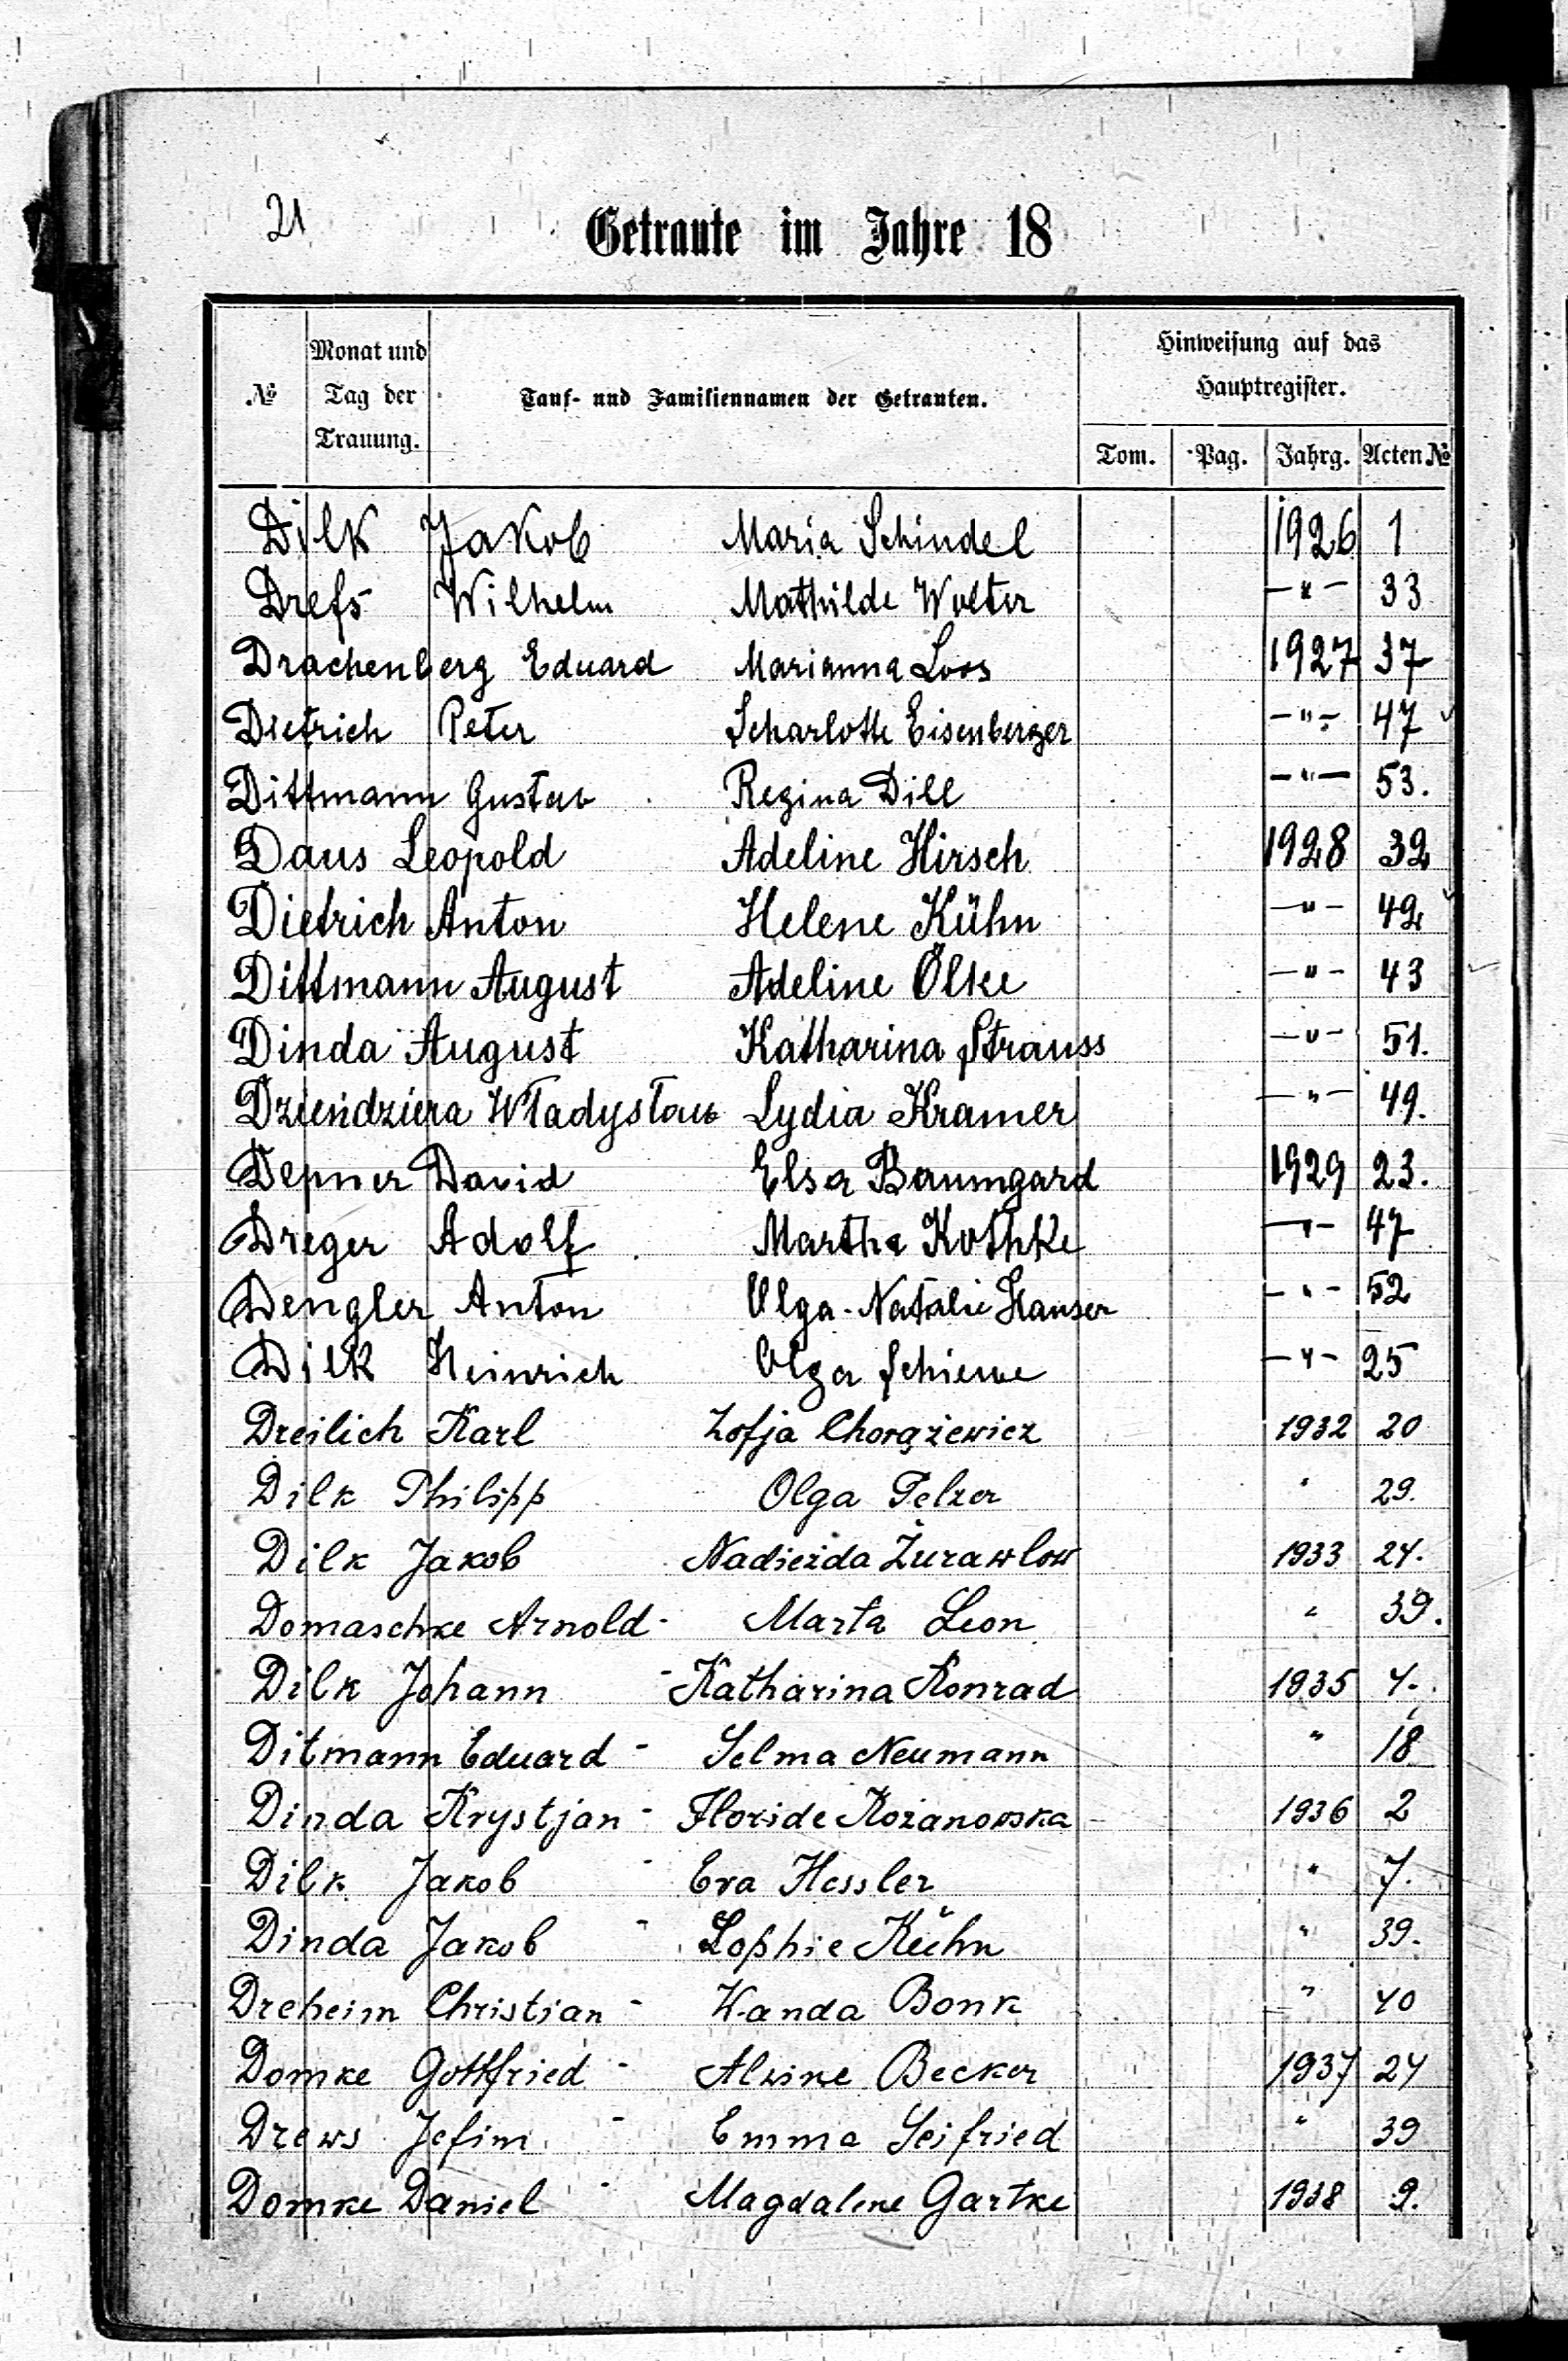 21
Getraute im Jahre 18
№
Monat und
Tag der
Trauung.
Tauf- und Familiennamen der Getrauten.
Hinweisung auf das
Hauptregister.
Tom. Pag. Jahrg. Acten №
Dilk Jakob Maria Schindel 1926 1
Drefs Wilhelm Mathilde Wolter —"— 33
Drachenberg Eduard Marianna Loos 1927 37
Dietrich Peter Scharlotte Eisenberger —"— 47
Dittmann Gustav Regina Dill —"— 53.
Daus Leopold Adeline Hirsch 1928 32
Dietrich Anton Helene Kühn —"— 42
Dittmann August Adeline Ölke —"— 43
Dinda August Katharina Strauss —"— 51.
Dzieńdziera Władysław Lydia Kramer —"— 49.
Depner David Elsa Baumgard 1929 23.
Dreger Adolf Martha Kothke —"— 47
Dengler Anton Olga-Natalie Hauser —"— 52
Dilk Heinrich Olga Schiewe —"— 25
Dreilich Karl Zofja Chorążewicz 1932 20
Dilk Philipp Olga Felzer " 29.
Dilk Jakob Nadieżda Żurawlow 1933 24.
Domaschke Arnold - Marta Leon " 39.
Dilk Johann - Katharina Konrad 1935 4.
Ditmann Eduard - Selma Neumann " 18
Dinda Krystjan - Floride Rożanowska 1936 2
Dilk Jakob - Eva Hessler " 7.
Dinda Jakob - Sophie Kühn " 39.
Dreheim Christian - Wanda Bonk " 40
Domke Gottfried - Alwine Becker 1937 24
Drews Jefim - Emma Seifried " 39
Domke Daniel - Magdalene Gartke 1938 9.